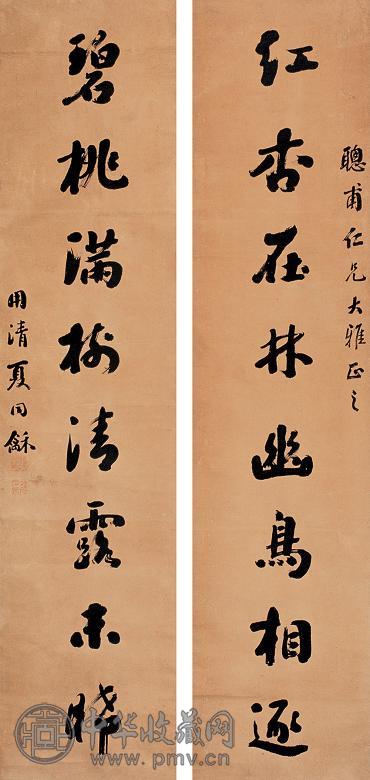 聰甫仁兄大雅正之
紅杏在林幽鳥相逐
碧桃滿樹清露未晞
用清夏同龢
中华收藏网
www.pmv.cn